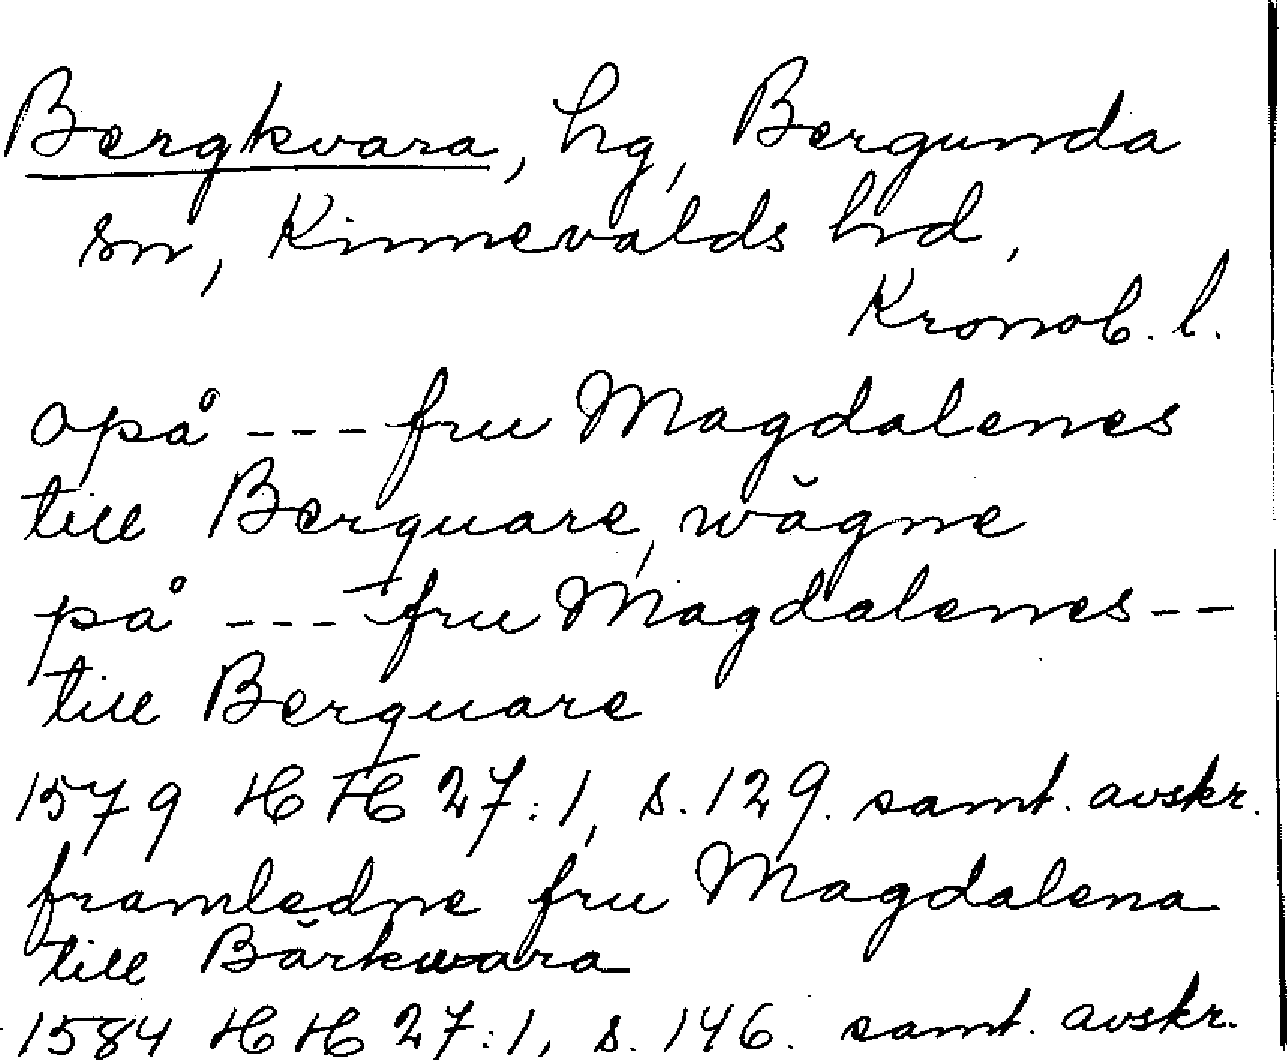 Bergkvara, hg, Bergunda
sn, Kinnevalds hd,
Kronob. l.
opå --- fru Magdalenes
till Berquare, wägne
på --- fru Magdalenes --
till Berquare
1579 HH 27:1, s. 129. samt. avskr.
framledne fru Magdalena
till Bärkwara
1584 HH 27:1, s. 146. samt. avskr.